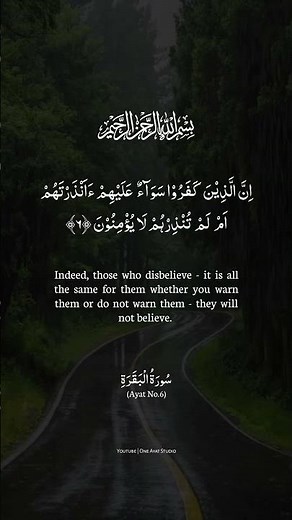 بِسْمِ اللهِ الرَّحْمٰنِ الرَّحِيْمِ
اِنَّ الَّذِيْنَ كَفَرُوْا سَوَآءٌ عَلَيْهِمْ ءَاَنْذَرْتَهُمْ
اَمْ لَمْ تُنْذِرْهُمْ لَا يُؤْمِنُوْنَ ﴿۶﴾
Indeed, those who disbelieve - it is all
the same for them whether you warn
them or do not warn them - they will
not believe.
سُورَةُ الْبَقَرَةِ
(Ayat No.6)
Youtube | One Ayat Studio